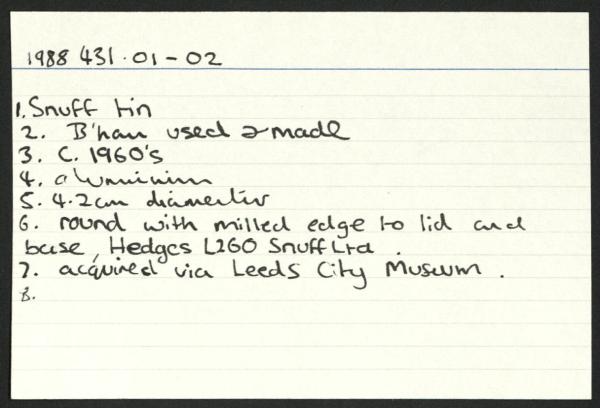 1988 431.01-02
1. Snuff tin
2. B'ham used & made
3. C. 1960's
4. aluminium
5. 4.2cm diameter
6. round with milled edge to lid and
base, Hedges L260 Snuff Ltd.
7. acquired via Leeds City Museum.
8.